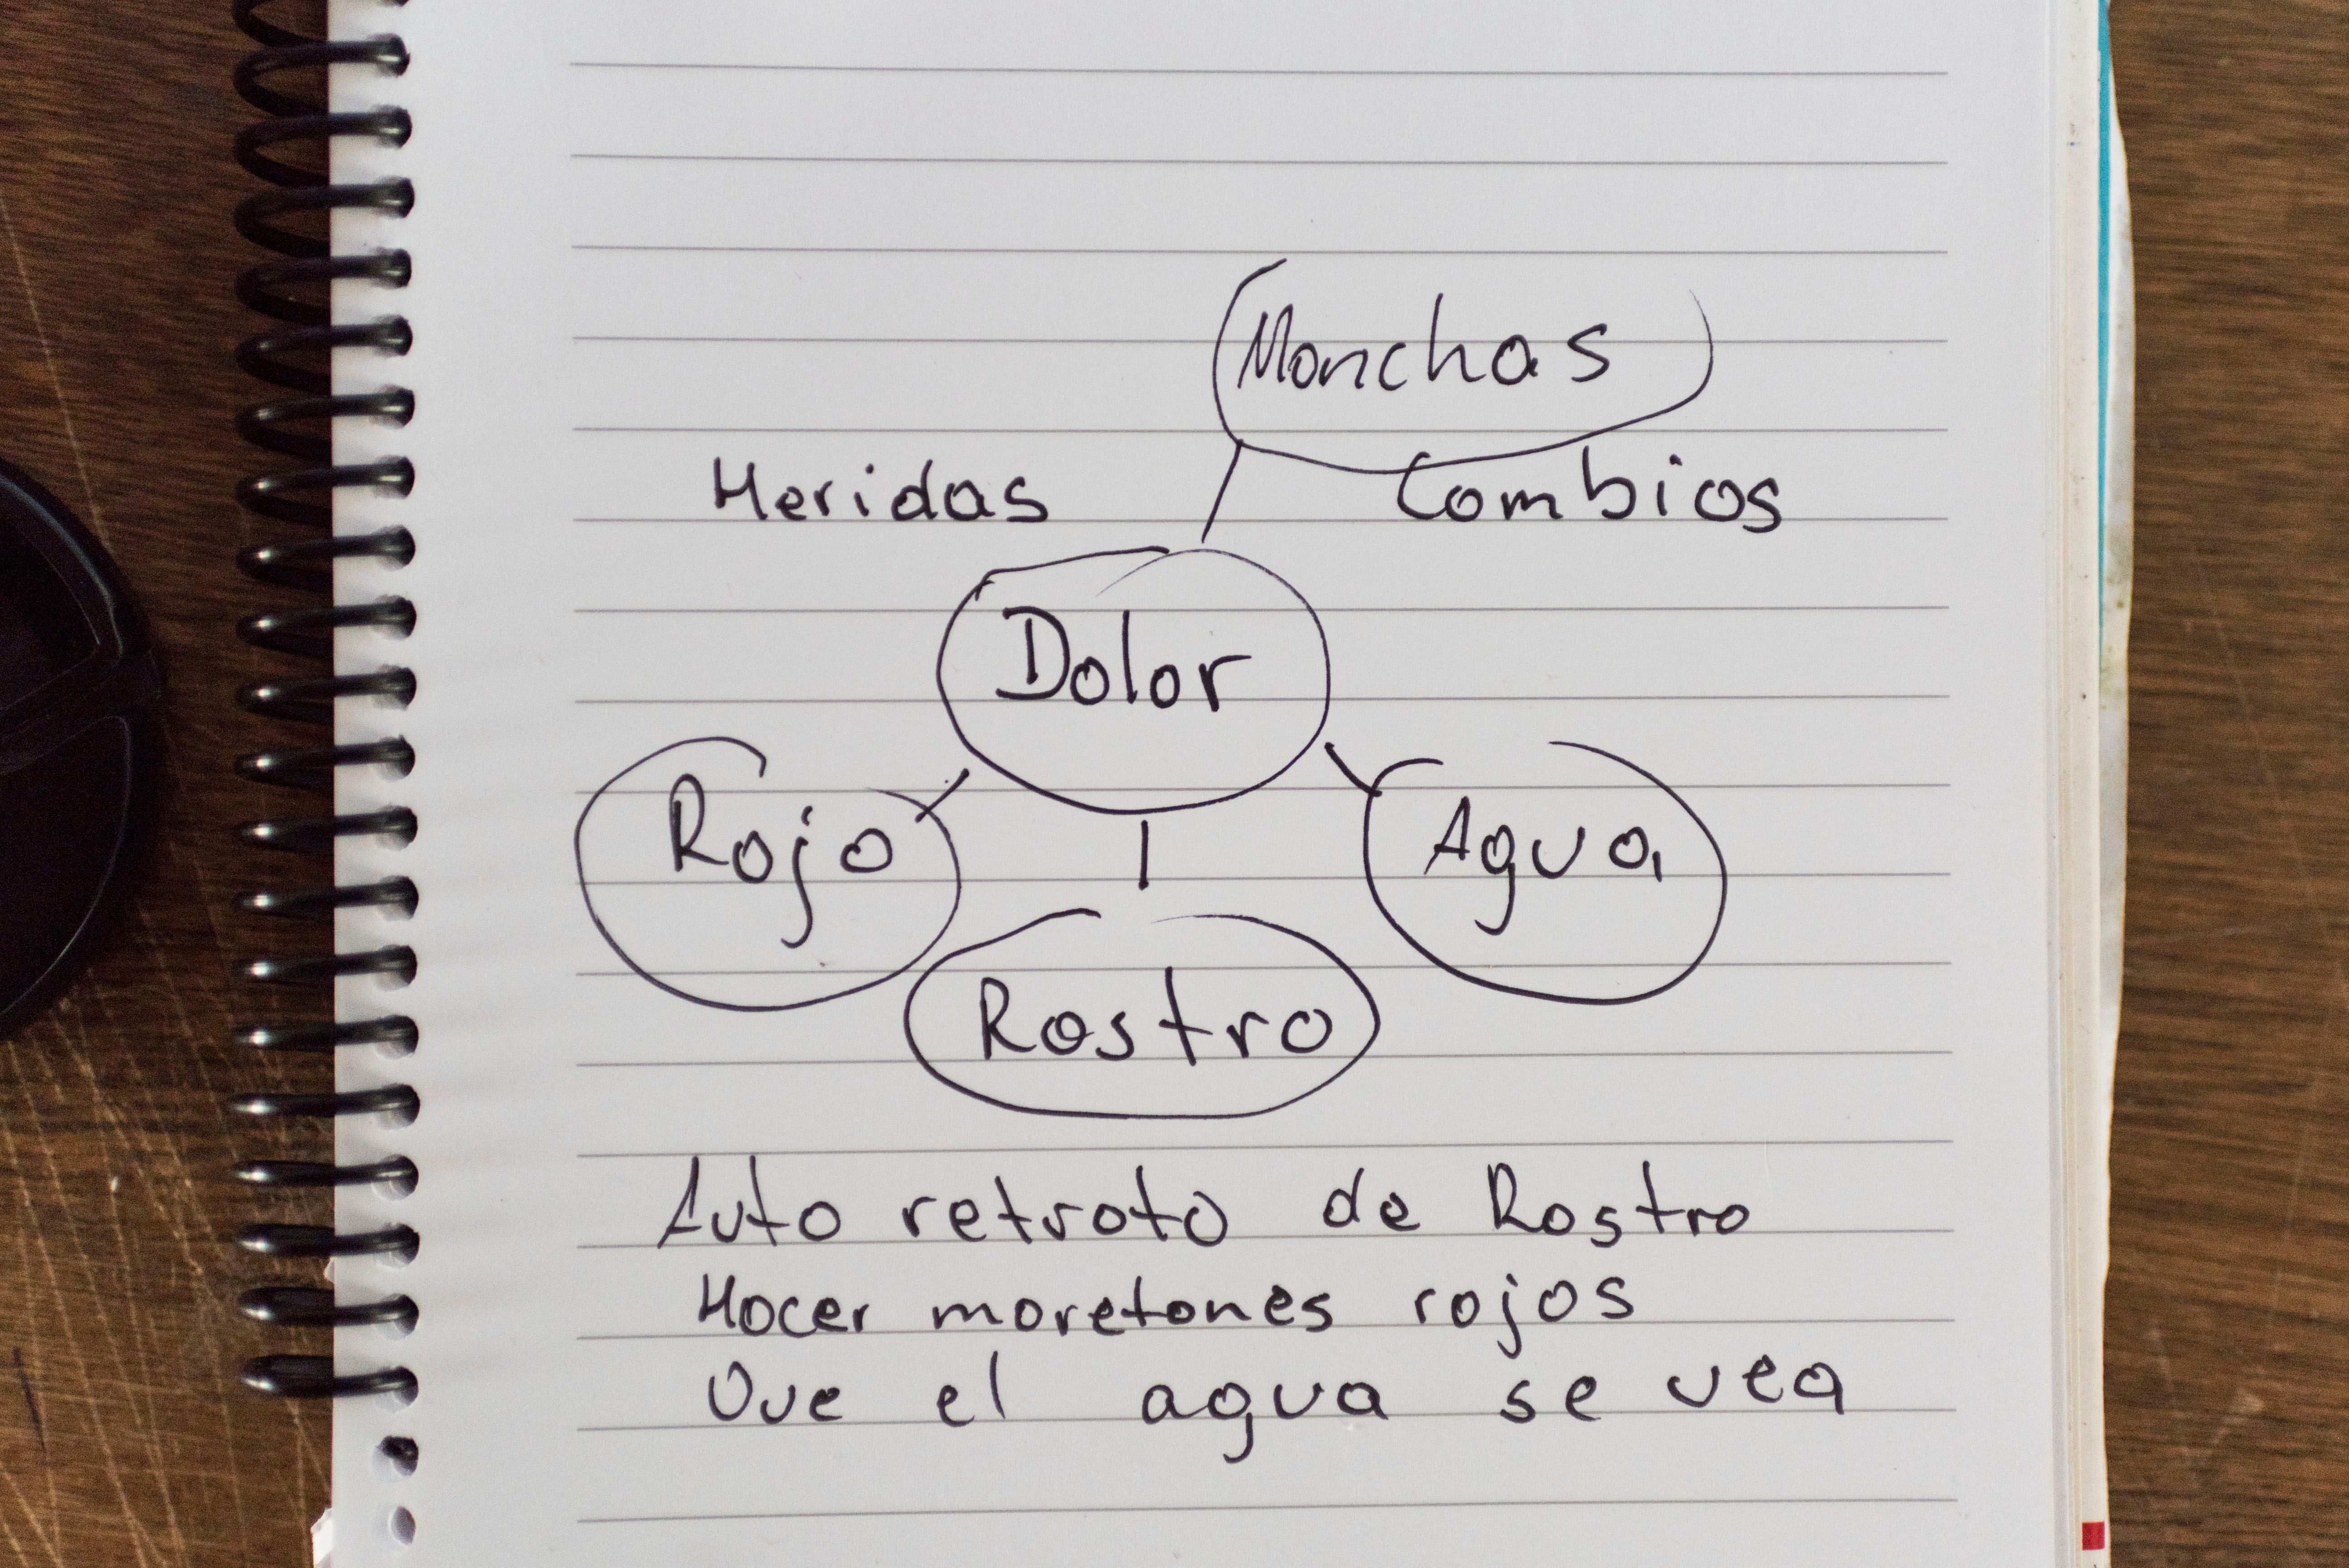 Manchas
Heridas Cambios
Dolor
Rojo Agua
Rostro
Auto retrato de Rostro
Hacer moretones rojos
Que el agua se vea